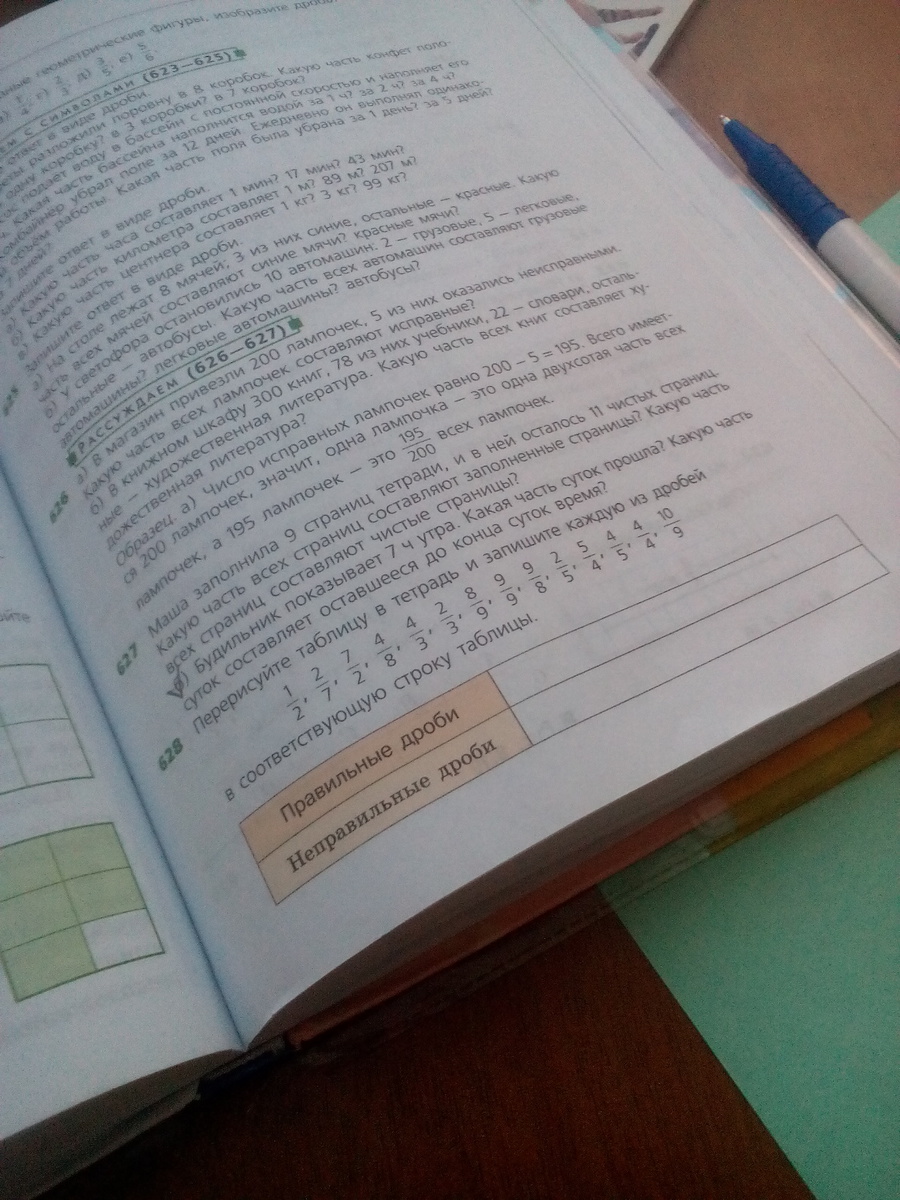 ные геометрические фигуры, изобразите дробь
г) 2/3 д) 3/5 е) 5/6.
С СИМВОЛАМИ (623—625)
ответ в виде дроби.
разложили поровну в 8 коробок. Какая часть конфет поло-
коробку? в 3 коробки? в 7 коробок?
подаёт воду в бассейн с постоянной скоростью и наполняет его
Какая часть бассейна наполнится водой за 1 ч? за 2 ч? за 4 ч?
убрал поле за 12 дней. Ежедневно он выполнял одинако-
объём работы. Какая часть поля была убрана за 1 день? за 5 дней?
7 дней?
ответ в виде дроби.
а) Какую часть часа составляет 1 мин? 17 мин? 43 мин?
б) Какую часть километра составляет 1 м? 89 м? 207 м?
в) Какую часть центнера составляет 1 кг? 3 кг? 99 кг?
625 Запишите ответ в виде дроби.
а) На столе лежат 8 мячей; 3 из них синие, остальные — красные. Какую
часть всех мячей составляют синие мячи? красные мячи?
б) У светофора остановились 10 автомашин: 2 — грузовые, 5 — легковые,
остальные — автобусы. Какую часть всех автомашин составляют грузовые
автомашины? легковые автомашины? автобусы?
РАССУЖДАЕМ (626—627)
626 а) В магазин привезли 200 лампочек, 5 из них оказались неисправными.
Какую часть всех лампочек составляют исправные?
б) В книжном шкафу 300 книг, 78 из них учебники, 22 — словари, осталь-
ные — художественная литература. Какую часть всех книг составляет ху-
дожественная литература?
Образец. а) Число исправных лампочек равно 200 − 5 = 195. Всего имеет-
ся 200 лампочек, значит, одна лампочка — это одна двухсотая часть всех
лампочек, а 195 лампочек — это 195/200 всех лампочек.
627 Маша заполнила 9 страниц тетради, и в ней осталось 11 чистых страниц.
Какую часть всех страниц составляют заполненные страницы? Какую часть
всех страниц составляют чистые страницы?
б) Будильник показывает 7 ч утра. Какая часть суток прошла? Какую часть
суток составляет оставшееся до конца суток время?
628 Перерисуйте таблицу в тетрадь и запишите каждую из дробей
1/2, 2/7, 7/2, 4/8, 4/3, 2/3, 8/9, 9/9, 9/8, 2/5, 5/4, 4/5, 4/4, 10/9
в соответствующую строку таблицы.
Правильные дроби
Неправильные дроби